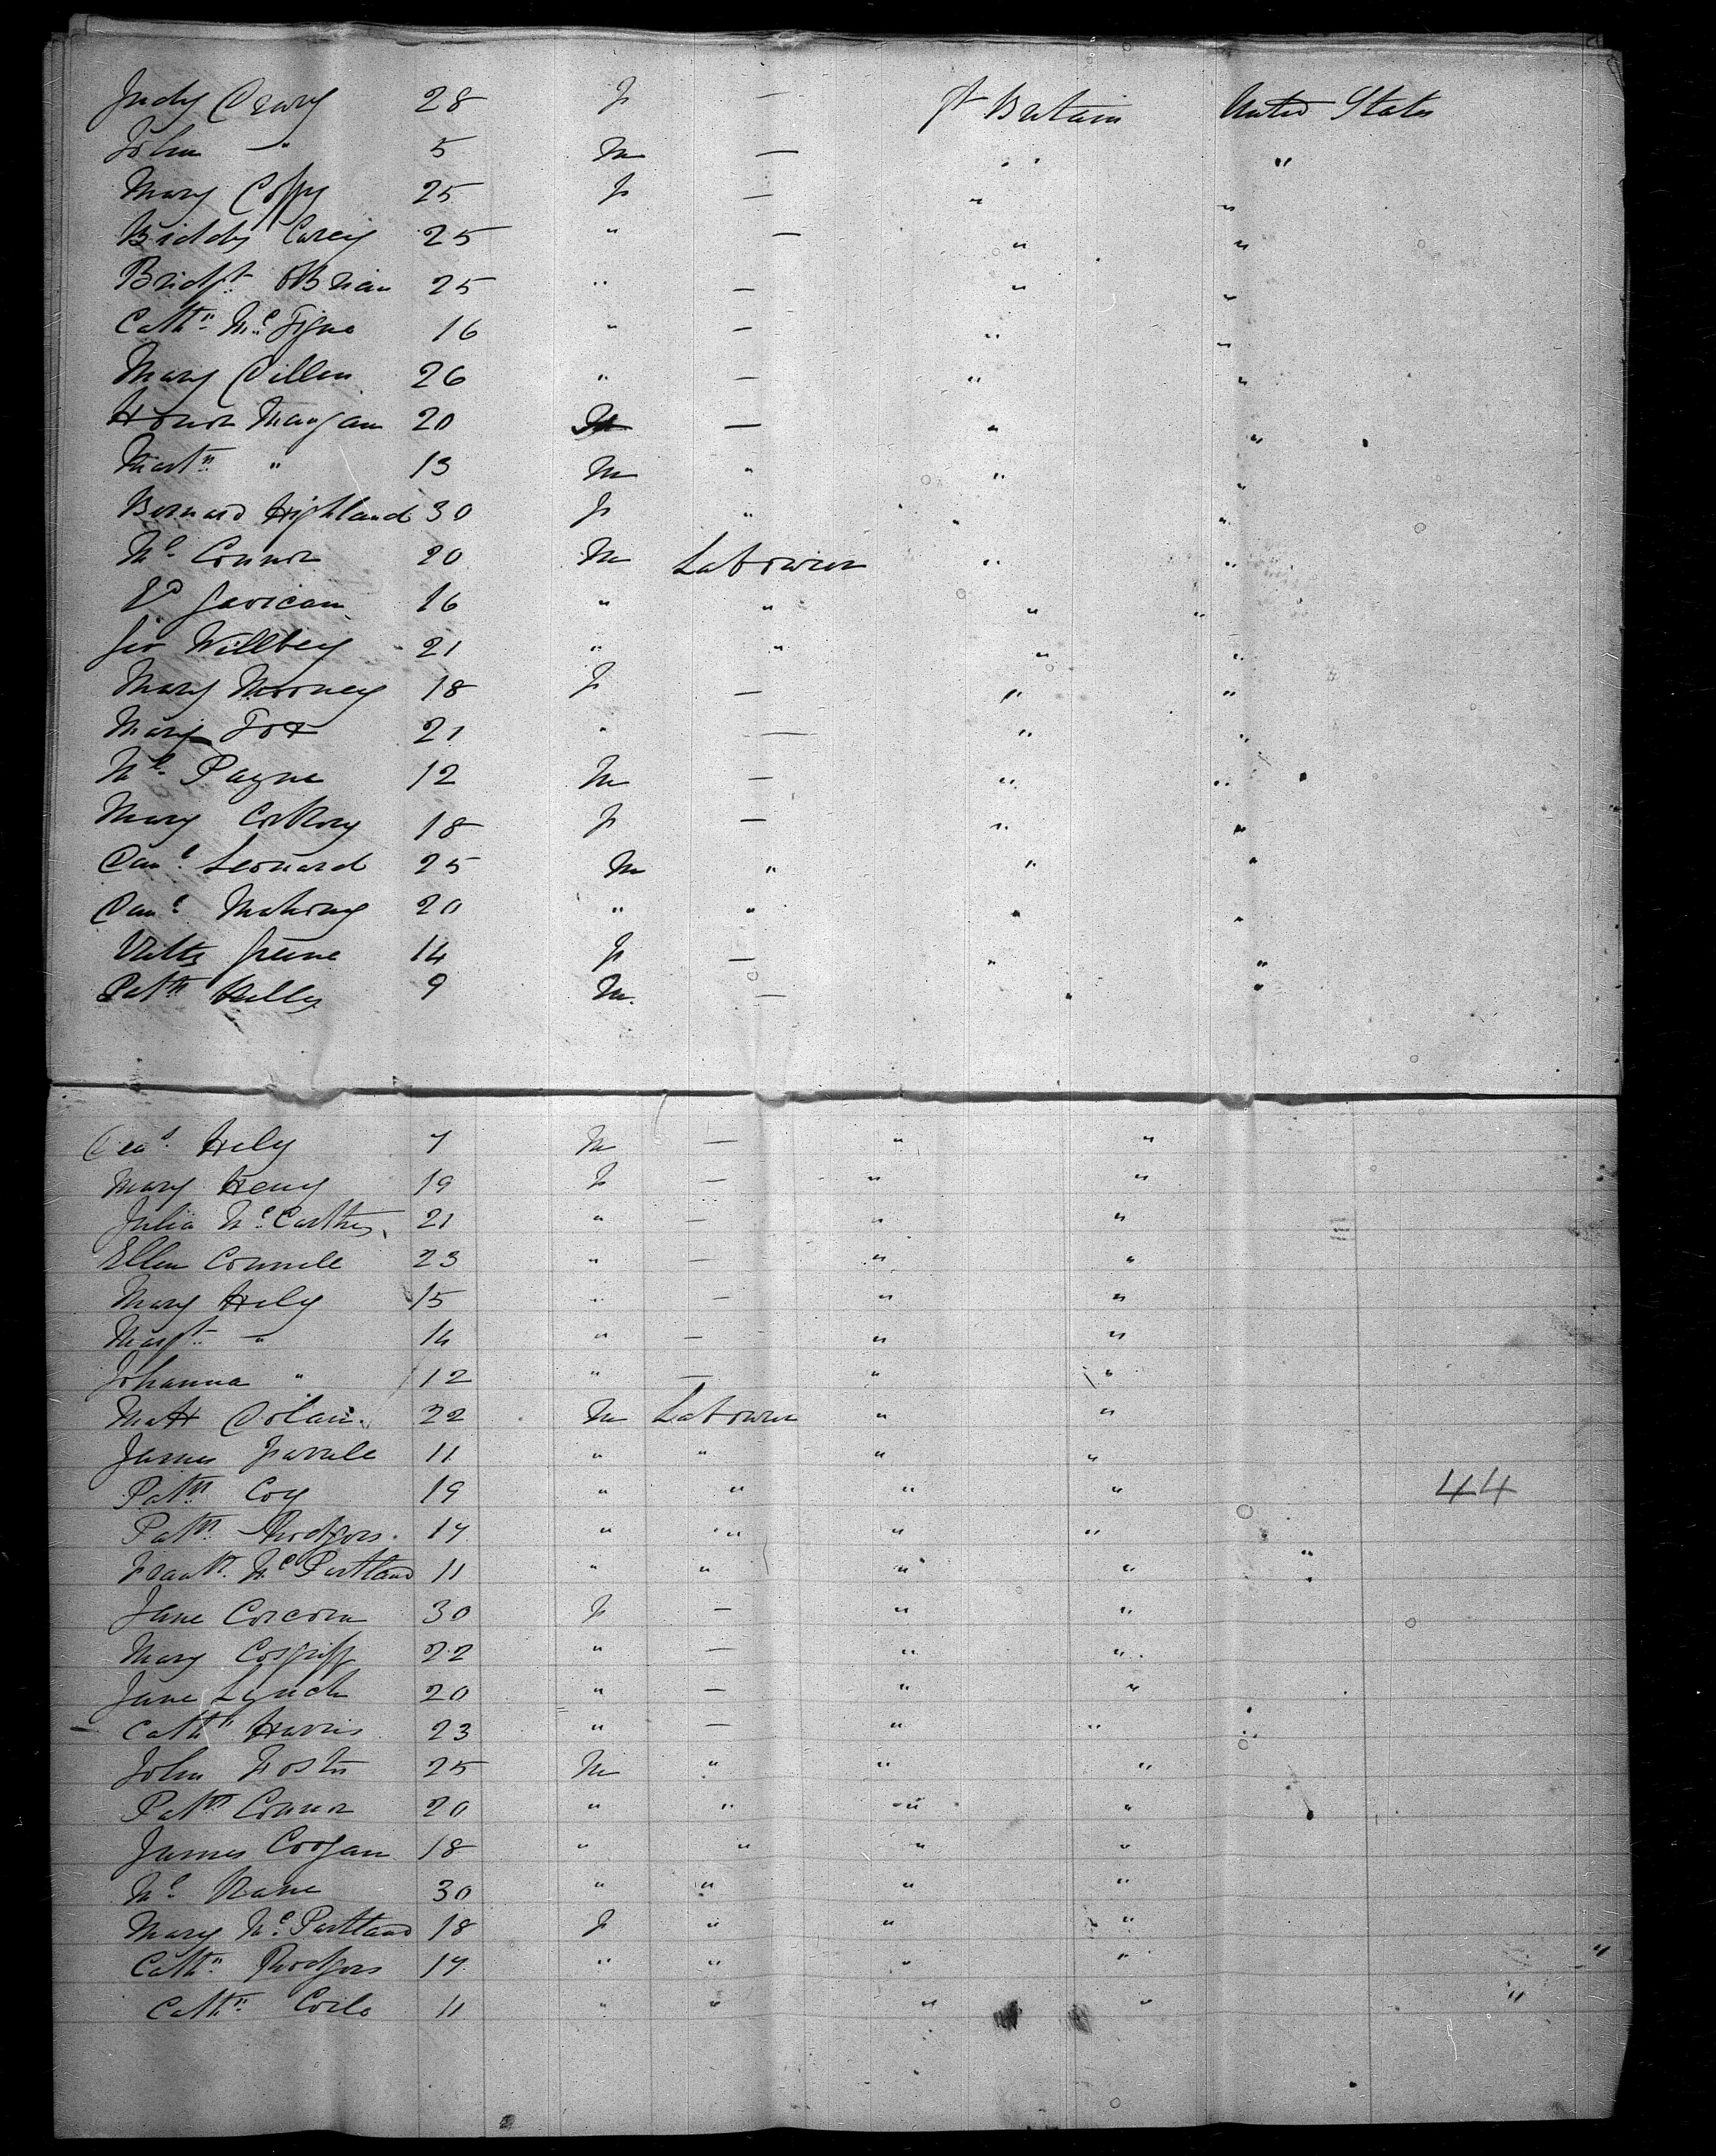 Judy Crary 28 F — Gt Britain United States
John " 5 M — " "
Mary Coffy 25 F — " "
Biddy Carey 25 " — " "
Bridgt OBrian 25 " — " "
Cathn McTigue 16 " — " "
Mary Dillen 26 " — " "
Honor Mangan 20 — " "
Martn " 13 M " " "
Bernard Highland 30 F " " "
Ml Connor 20 M Labourer " "
Ed Gavican 16 " " " "
Geo Willbey 21 " " " "
Mary Mooney 18 F — " "
Mary Fox 21 " — " "
Ml Payne 12 M — " "
Mary Corkory 18 F — " "
Danl Leonard 25 M " " "
Danl Mahony 20 " " " "
Greene 14 F — " "
Patk 9 M. — " "
Hely 7 M — " "
Mary Heny 19 F — " "
Julia McCarthy 21 " — " "
Ellen Connell 23 " — " "
Mary Hely 15 " — " "
Margt " 14 " — " "
Johanna " 12 " — " "
Matt Dolan 22 M Labourer " "
James Farrell 11 " " " "
Patk Coy 19 " " " " 44
Patk Rodgers 17 " " " "
Frank McPartland 11 " " " "
Jane Corcoran 30 F — " "
Mary Cosgriff 22 " — " "
Jane Lynch 20 " — " "
Cathn Harris 23 " — " "
John Foster 25 M " " "
Patk Connor 20 " " " "
James Coogan 18 " " " "
Ml Kane 30 " " " "
Mary McPartland 18 F " " "
Cathn Rodgers 17 " " " "
Cathn Coile 11 " " " "